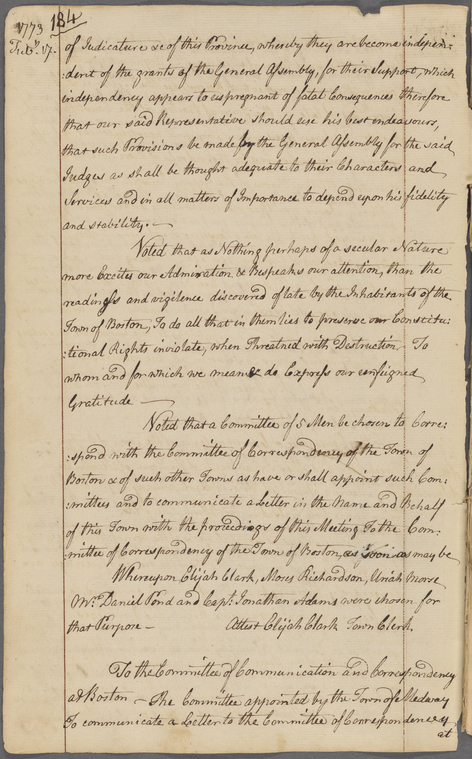 1773 184
Feb.y 17.
of Judicature &c of this Province, whereby they are become indepen:
:dent of the grants of the General Assembly, for their Support, which
independency appears to us pregnant of fatal Consequences therefore
that our said Representative should use his best endeavours,
that such Provisions be made by the General Assembly for the said
Judges as shall be thought adequate to their Characters and
Services and in all matters of Importance to depend upon his fidelity
and stability. —
Voted that as Nothing perhaps of a secular Nature
more Excites our Admiration & Bespeaks our attention, than the
readings and vigilence discovered of late by the Inhabitants of the
Town of Boston, To do all that in them lies to preserve our Constitu:
:tional Rights inviolate, when Threatned with Destruction — To
whom and for which we mean & do Express our unfeigned
Gratitude —
Voted that a Committee of 5 Men be chosen to Corre:
:spond with the Committee of Correspondency of the Town of
Boston & of such other Towns as have or shall appoint such Com:
:mittees and to communicate a Letter in the Name and Behalf
of this Town with the proceedings of this Meeting To the Com:
:mittee of Correspondency of the Town of Boston, as soon as may be
Whereupon Elijah Clark, Moses Richardson, Uriah Morse
Mr. Daniel Pond and Capt. Jonathan Adams were chosen for
that Purpose — Attest Elijah Clark Town Clerk.
To the Committee of Communication and Correspondency
at Boston — The Committee appointed by the Town of Medway
To communicate a Letter to the Committee of Correspondency
at